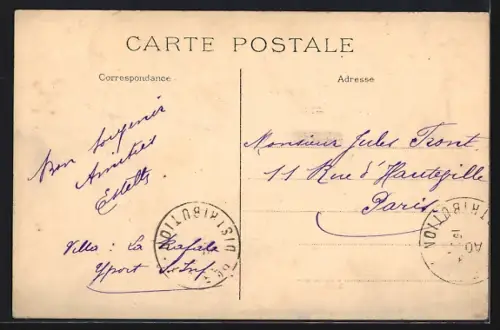 CARTE POSTALE
Correspondance
Adresse
Bon Souvenir
Amitiés
Estelle
Villa : La Rafale
Yport S. Inf
Monsieur Jules Tront
11 Rue d'Hautefille
Paris
DISTRIBUTION
DISTRIBUTION